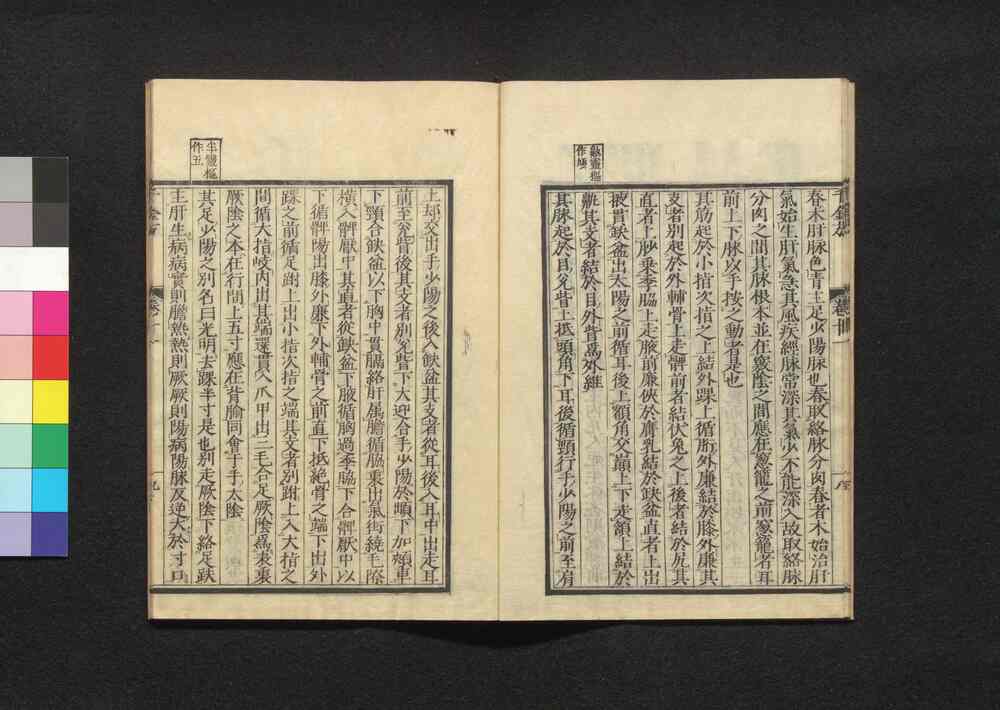 春木肝脉色青主足少陽脉也春取絡脉分肉春者木始治肝
氣始生肝氣急其風疾經脉常深其氣少不能深入故取絡脉
分肉之間其脉根本並在竅陰之間應在窻籠之前窻籠者耳
前上下脉以手按之動者是也
其筋起於小指次指之上結外踝上循胻外廉結於膝外廉其
支者別起於外輔骨上走髀前者結伏兔之上後者結於尻其
直者上䏚乗季脇上走腋前廉俠於膺乳結於缺盆直者上出
掖貫缺盆出太陽之前循耳後上額角交巔上下走頷上結於
鼽其支者結於目外眥爲外維
其脉起於目兊眥上抵頭角下耳後循頸行手少陽之前至肩
鼽靈樞
作䪼
上却交出手少陽之後入缺盆其支者從耳後入耳中出走耳
前至兊眥後其支者別兊眥下大迎合手少陽於䪼下加頰車
下頸合缺盆以下胸中貫膈絡肝屬膽循脇裏出氣街繞毛際
橫入髀厭中其直者從缺盆下腋循胸過季脇下合髀厭中以
下循髀陽出膝外廉下外輔骨之前直下抵絶骨之端下出外
踝之前循足跗上出小指次指之端其支者別跗上入大指之
間循大指岐內出其端還貫入爪甲出三毛合足厥陰爲表裏
厥陰之本在行間上五寸應在背腧同會于手太陰
其足少陽之別名曰光明去踝半寸是也別走厥陰下絡足趺
主肝生病病實則膽熱熱則厥厥則陽病陽脉反逆大於寸口
半靈樞
作五